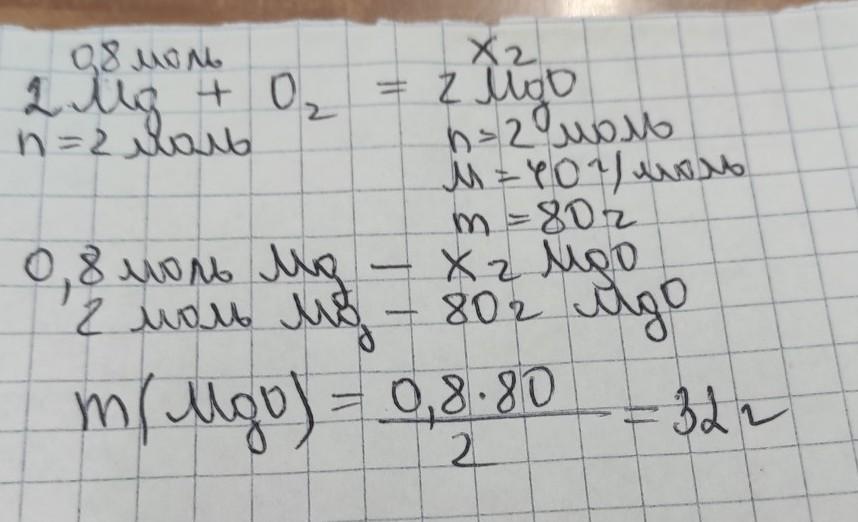 0,8 моль х г
2 Mg + O₂ = 2 MgO
n = 2 моль n = 2 моль
M = 40 г/моль
m = 80 г
0,8 моль Mg – х г MgO
2 моль Mg – 80 г MgO
m(MgO) = 0,8·80 / 2 = 32 г